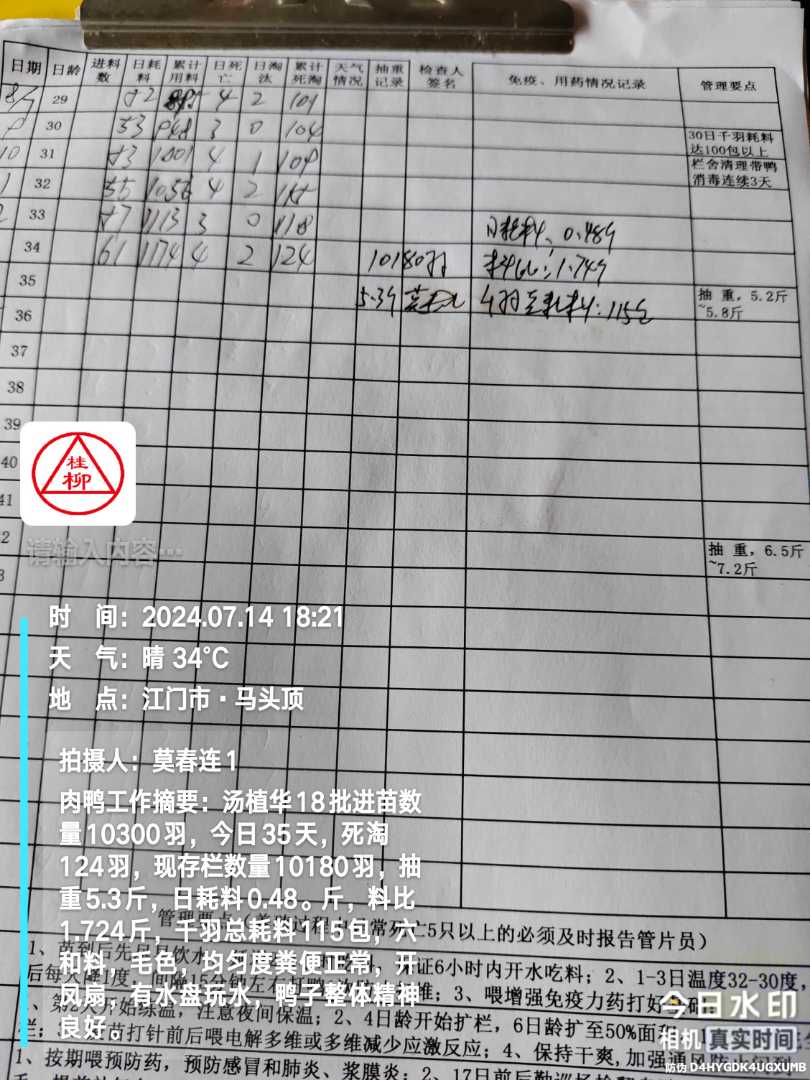 日期 日龄 进料数 日耗料 累计用料 日死亡 日淘汰 累计死淘 天气情况 抽重记录 检查人签名 免疫、用药情况记录 管理要点
29 52 895 4 2 101
30 53 948 3 0 104
30日千羽耗料
达100包以上
31 53 1001 4 1 109
栏舍清理带鸭
消毒连续3天
32 55 1056 4 2 115
33 57 1113 3 0 118
日耗料: 0.48斤
34 61 1174 4 2 124 10180羽 料比: 1.74斤
35
5.3斤 千羽总耗料: 115包
抽重,5.2斤
~5.8斤
36
37
38
39
40
41
抽重,6.5斤
~7.2斤
桂
柳
请输入内容…
时 间:2024.07.14 18:21
天 气:晴 34℃
地 点:江门市·马头顶
拍摄人:莫春连1
肉鸭工作摘要:汤植华18批进苗数
量10300羽,今日35天,死淘
124羽,现存栏数量10180羽,抽
重5.3斤,日耗料0.48。斤,料比
1.724斤,千羽总耗料115包,六
和料,毛色,均匀度粪便正常,开
风扇,有水盘玩水,鸭子整体精神
良好。
管理要点
死亡5只以上的必须及时报告管片员)
证6小时内开水吃料;2、1-3日温度32-30度,
3、喂增强免疫力药打好
注意夜间保温;2、4日龄开始扩栏,6日龄扩至50%面
苗打针前后喂电解多维或多维减少应激反应;4、保持干爽,加强通风
1、按期喂预防药,预防感冒和肺炎、浆膜炎;2、17日前后勤巡栏
今日水印
相机 真实时间
防伪 D4HYGDK4UGXUME